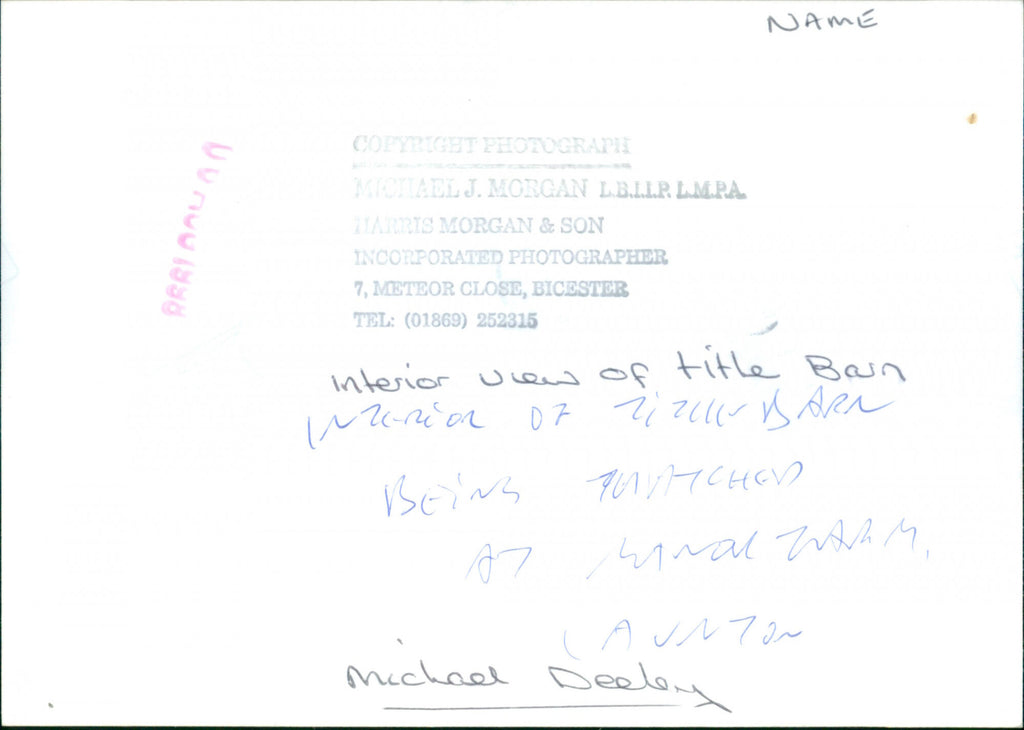 NAME
COPYRIGHT PHOTOGRAPH
MICHAEL J. MORGAN L.B.I.I.P. L.M.P.A.
HARRIS MORGAN & SON
INCORPORATED PHOTOGRAPHER
7, METEOR CLOSE, BICESTER
TEL: (01869) 252315
Interior view of tithe Barn
INTERIOR OF TITHE BARN
BEING THATCHED
AT MANOR FARM,
LAUNTON
Michael Deeley